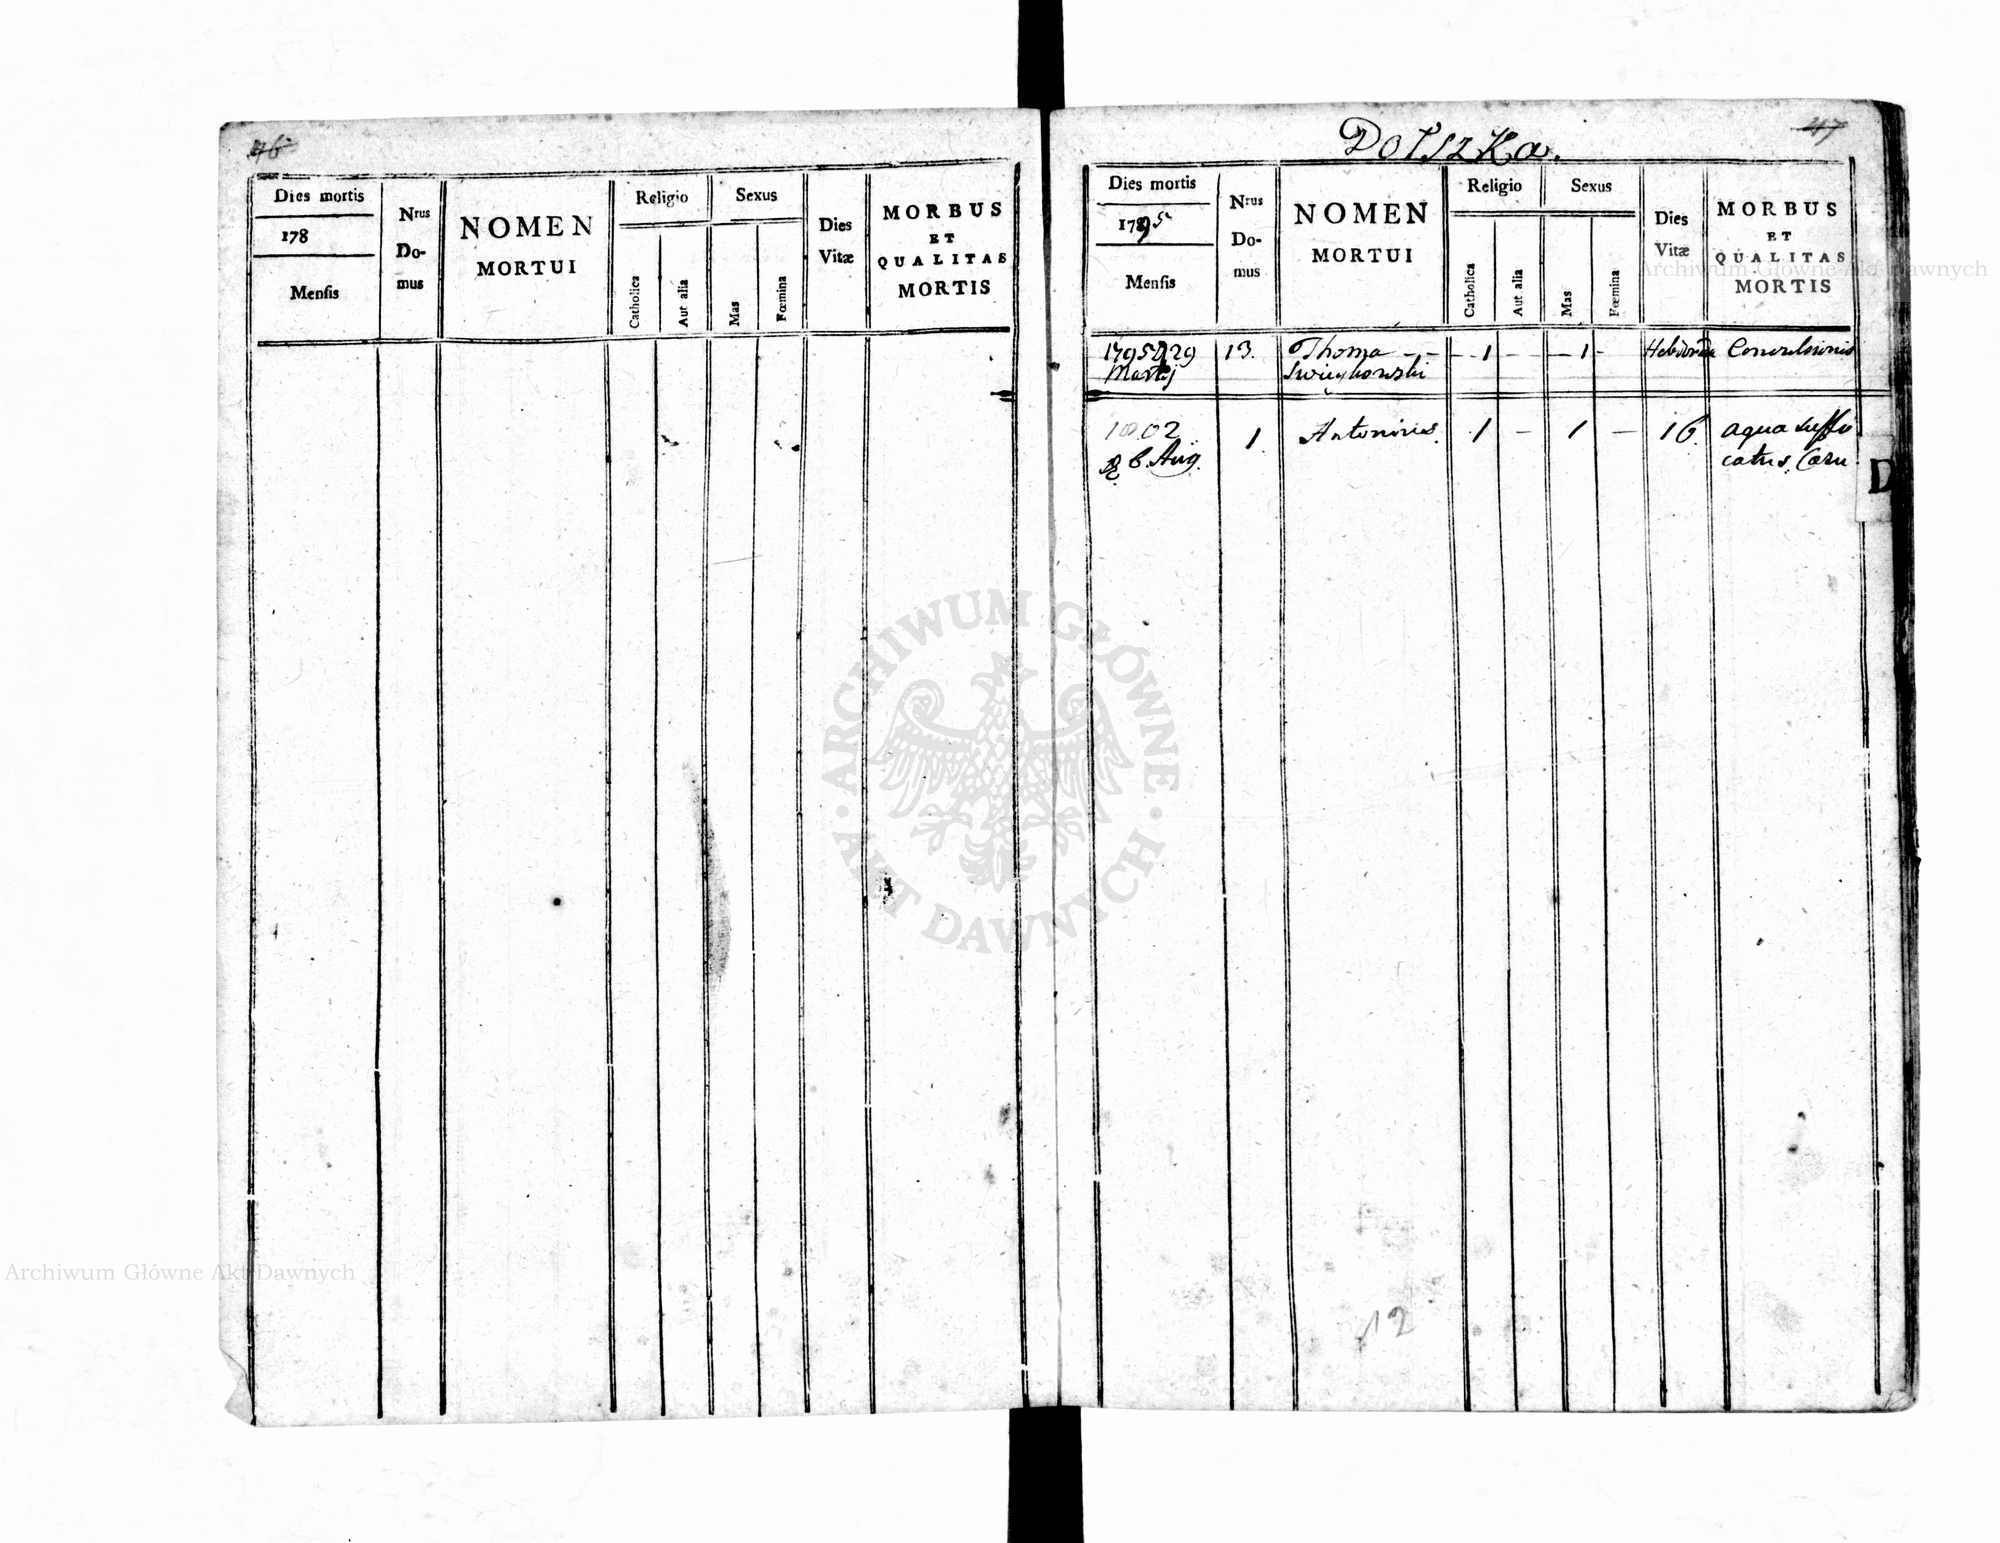 46
Dies mortis
178
Mensis
Nrus
Do-
mus
NOMEN
MORTUI
Religio
Catholica
Aut alia
Sexus
Mas
Fœmina
Dies
Vitæ
MORBUS
ET
QUALITAS
MORTIS
47
Dotszka.
Dies mortis
1795
Mensis
Nrus
Do-
mus
NOMEN
MORTUI
Religio
Catholica
Aut alia
Sexus
Mas
Fœmina
Dies
Vitæ
MORBUS
ET
QUALITAS
MORTIS
1795 29 13. Thoma - - - 1 - - - 1 - Convulsionis
Martij
1802 1 Antonius. 1 - 1 - 16. aqua suffo
6. Aug. catus.
D
12
ARCHIWUM GŁÓWNE
AKT DAWNYCH
Archiwum Główne Akt Dawnych
Archiwum Główne Akt Dawnych